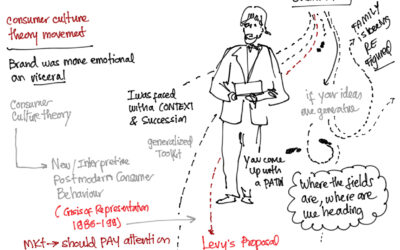 consumer culture
theory movement
Brand was more emotional
an visceral
Consumer
Culture theory
New/Interpretive
Postmodern Consumer
Behaviour
(Crisis of Representation
MKt → should PAY attention
I was faced
with a CONTEXT
& Succession
generalized
Toolkit
You come
up with
a PATH
Levy's Proposal
if your ideas
are generative
FAMILY
RE
Figured
Where the fields
are, where are
we heading